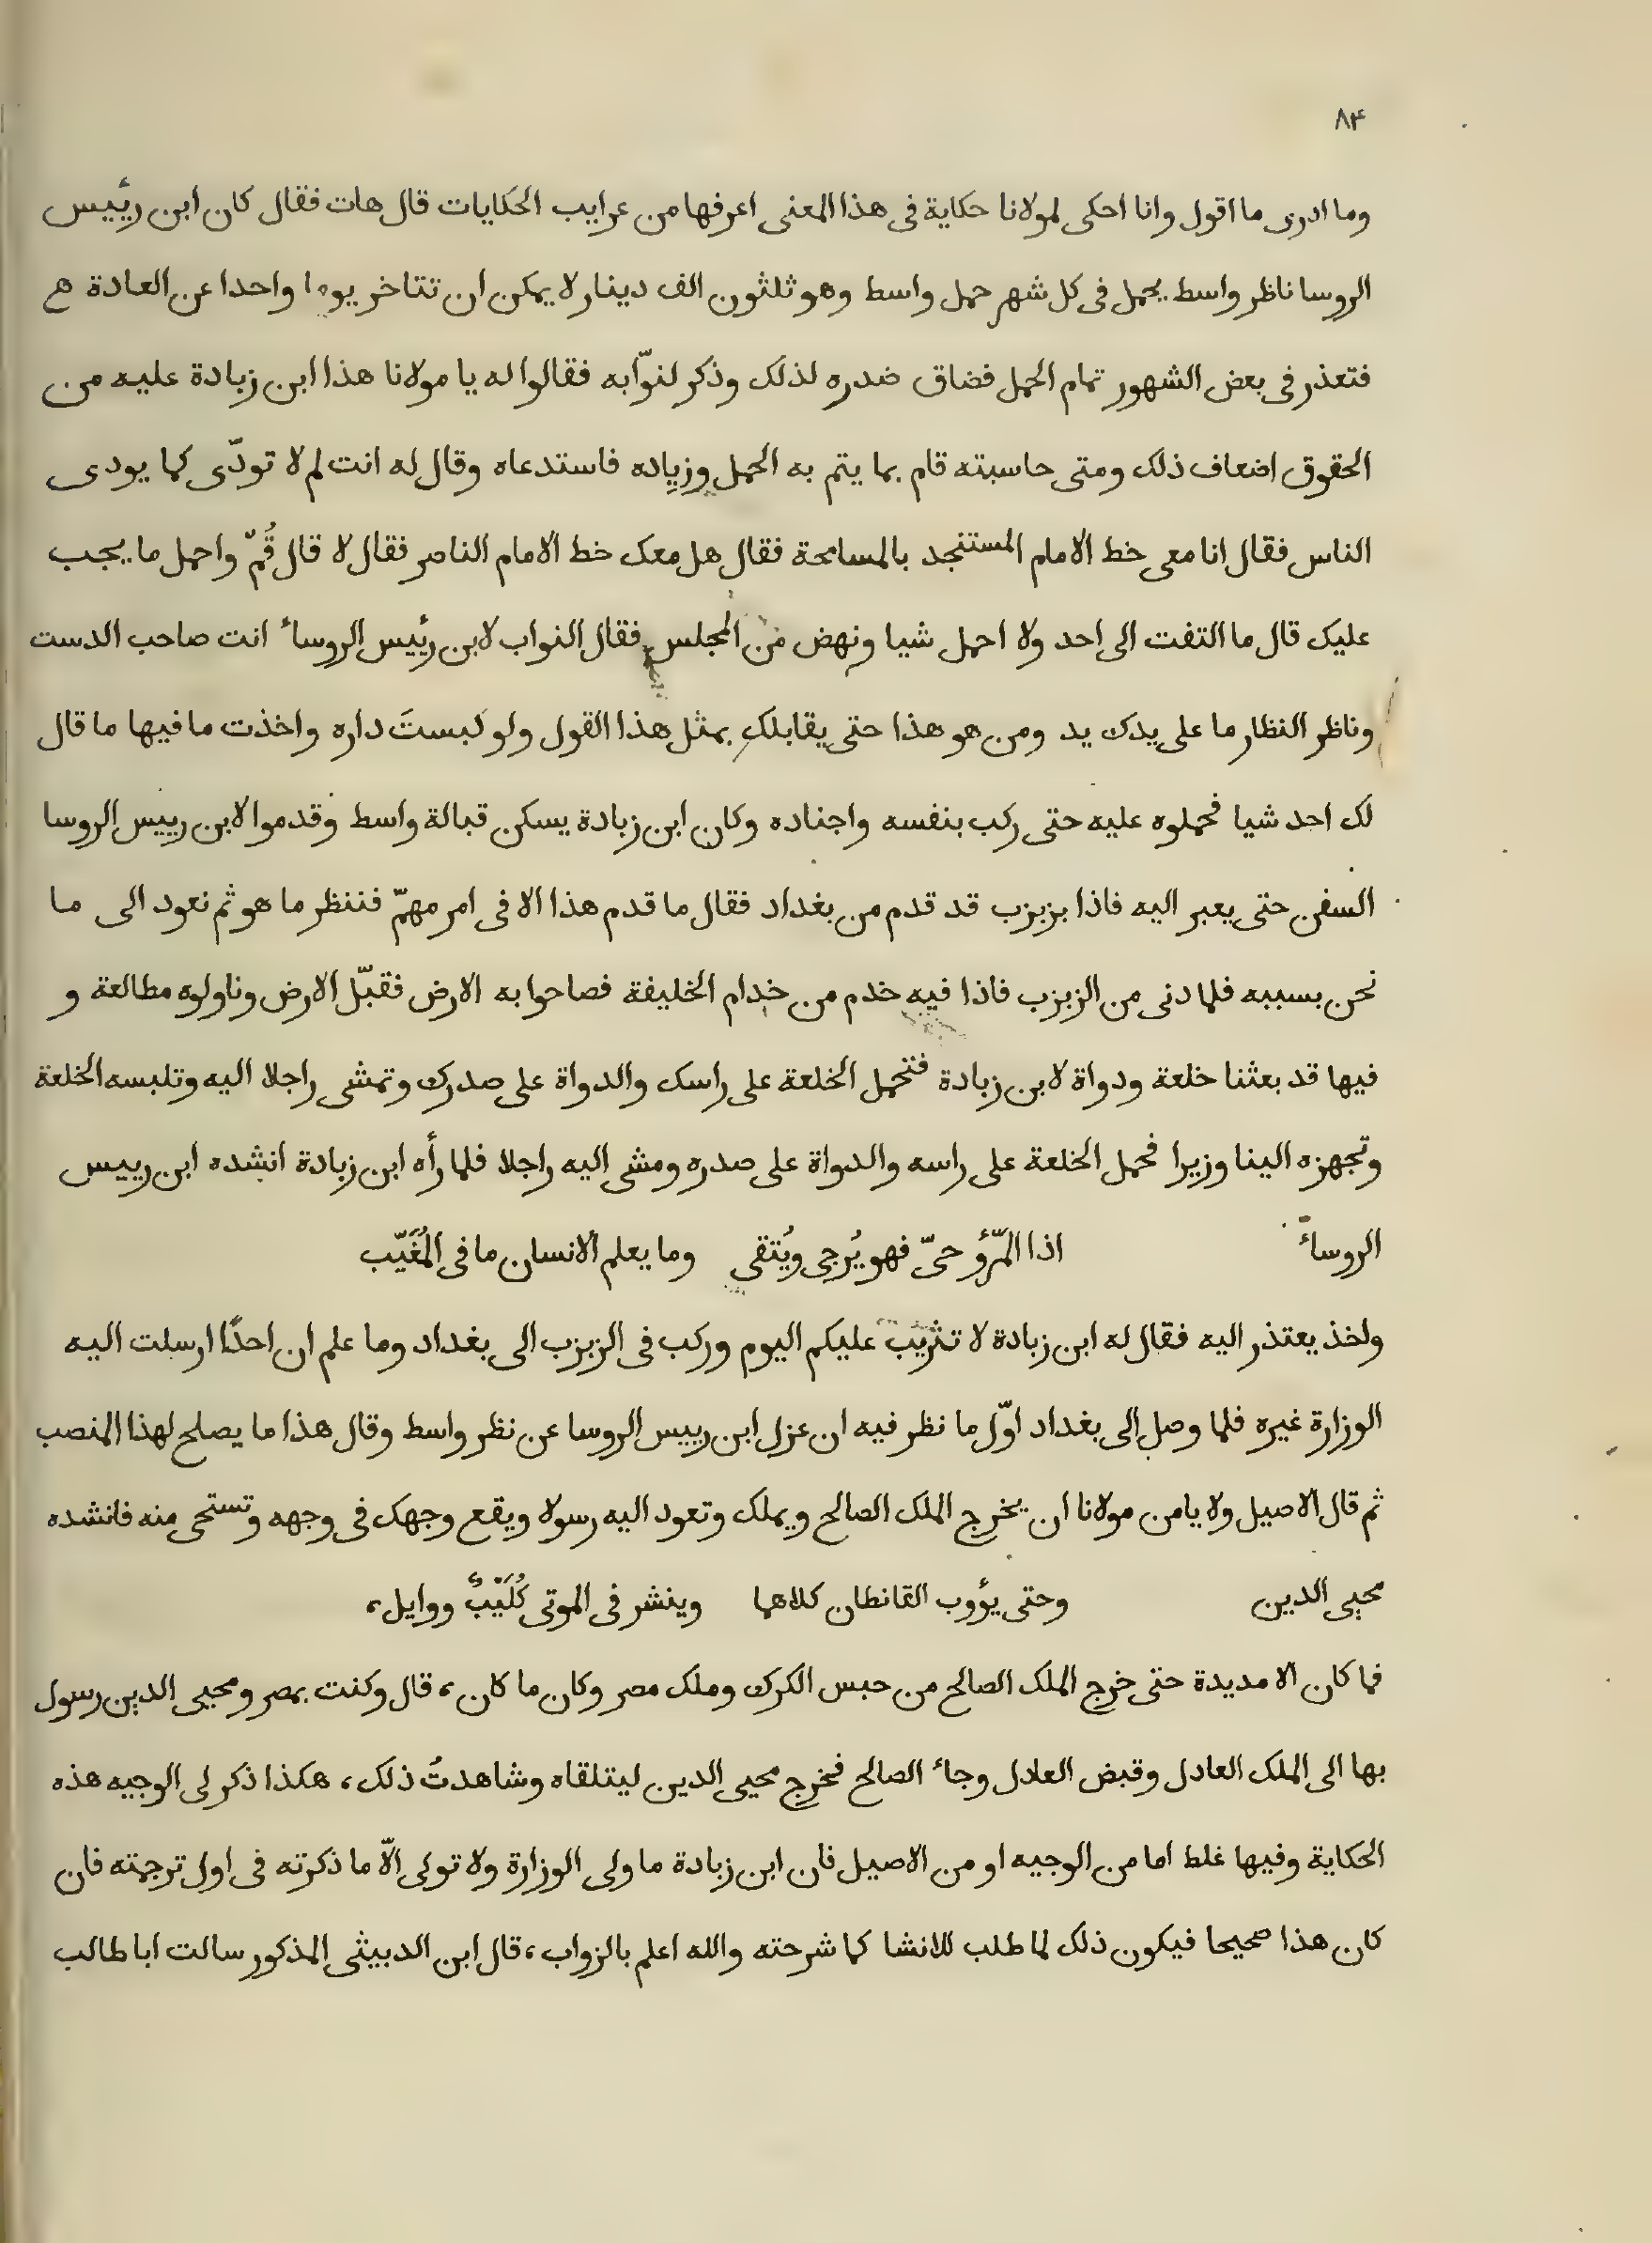 ٨۴
وما ادرى ما اقول وانا احكى لمولانا حكاية فى هذا المعنى اعرفها من عرايب الحكايات قال هات فقال كان ابن رئييس
الروسا ناظر واسط يحمل فى كل شهر حمل واسط وهو ثلثون الف دينار لا يمكن ان تتاخر يوما واحدا عن العادة
فتعذر فى بعض الشهور تمام الحمل فضاق ضدره لذلك وذكر لنوّابه فقالوا له يا مولانا هذا ابن زبادة عليه من
الحقوق اضعاف ذلك ومتى حاسبته قام بما يتم به الحمل وزياده فاستدعاه وقال له انت لم لا تودّى كما يودى
الناس فقال انا معى خط الامام المستنجد بالمسامحة فقال هل معك خط الامام الناصر فقال لا قال قُمّ واحمل ما يجب
عليك قال ما التفت الى احد ولا احمل شيا ونهض من المجلس فقال النواب لابن رئيس الروساء انت صاحب الدست
وناظر النظار ما على يدك يد ومن هو هذا حتى يقابلك بمثل هذا القول ولو كبستَ داره واخذت ما فيها ما قال
لك احد شيا فحملوه عليه حتى ركب بنفسه واجناده وكان ابن زبادة يسكن قبالة واسط وقدموا لابن رييس الروسا
السفن حتى يعبر اليه فاذا بزبزب قد قدم من بغداد فقال ما قدم هذا الا فى امر مهمّ فننظر ما هو ثم نعود الى ما
نحن بسببه فلما دنى من الزبزب فاذا فيه خدم من خدام الخليفة فصاحوا به الارض فقبّل الارض وناولوه مطالعة و
فيها قد بعثنا خلعة ودواة لابن زبادة فتحمل الخلعة على راسك والدواة على صدرك وتمشى راجلا اليه وتلبسه الخلعة
وتجهزه الينا وزيرا فحمل الخلعة على راسه والدواة على صدره ومشى اليه راجلا فلما رأه ابن زبادة انشده ابن رييس
الروساء اذا المرؤ حىّ فهو يُرجى ويُتقى وما يعلم الانسان ما فى المُغَيّب
واخذ يعتذر اليه فقال له ابن زبادة لا تثريب عليكم اليوم وركب فى الزبزب الى بغداد وما علم ان احدًا ارسلت اليه
الوزارة غيره فلما وصل الى بغداد اوّل ما نظر فيه ان عزل ابن رييس الروسا عن نظر واسط وقال هذا ما يصلح لهذا المنصب
ثم قال الاصيل ولا يامن مولانا ان يخرج الملك الصالح ويملك وتعود اليه رسولا ويقع وجهك فى وجهه وتستحى منه فانشده
محيى الدين وحتى يؤوب القانطان كلاهما وينشر فى الموتى كُلَيّبٌ ووايل،
فما كان الا مديدة حتى خرج الملك الصالح من حبس الكرك وملك مصر وكان ما كان، قال وكنت بمصر ومحيى الدين رسول
بها الى الملك العادل وقبض العادل وجاء الصالح فخرج محيى الدين ليتلقاه وشاهدتُ ذلك، هكذا ذكر لى الوجيه هذه
الحكاية وفيها غلط اما من الوجيه او من الاصيل فان ابن زبادة ما ولى الوزارة ولا تولى الّا ما ذكرته فى اول ترجمته فان
كان هذا صحيحا فيكون ذلك لما طلب للانشا كما شرحته والله اعلم بالزواب، قال ابن الدبيثى المذكور سالت ابا طالب